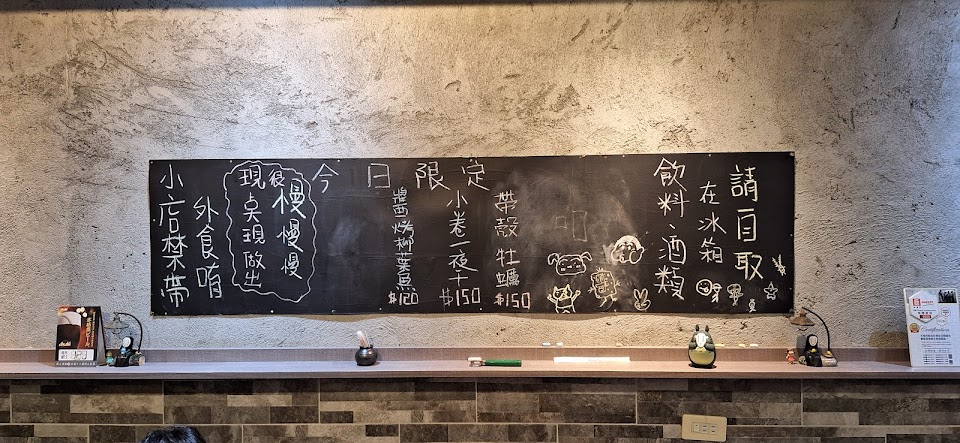 小店禁帶
外食唷
現点現做出
很慢慢慢
今日限定
醬烤柳葉魚
$120
小卷一夜干
$150
帶殼牡蠣
$150
飲料、酒類
在冰箱
請自取
Asahi
Certification